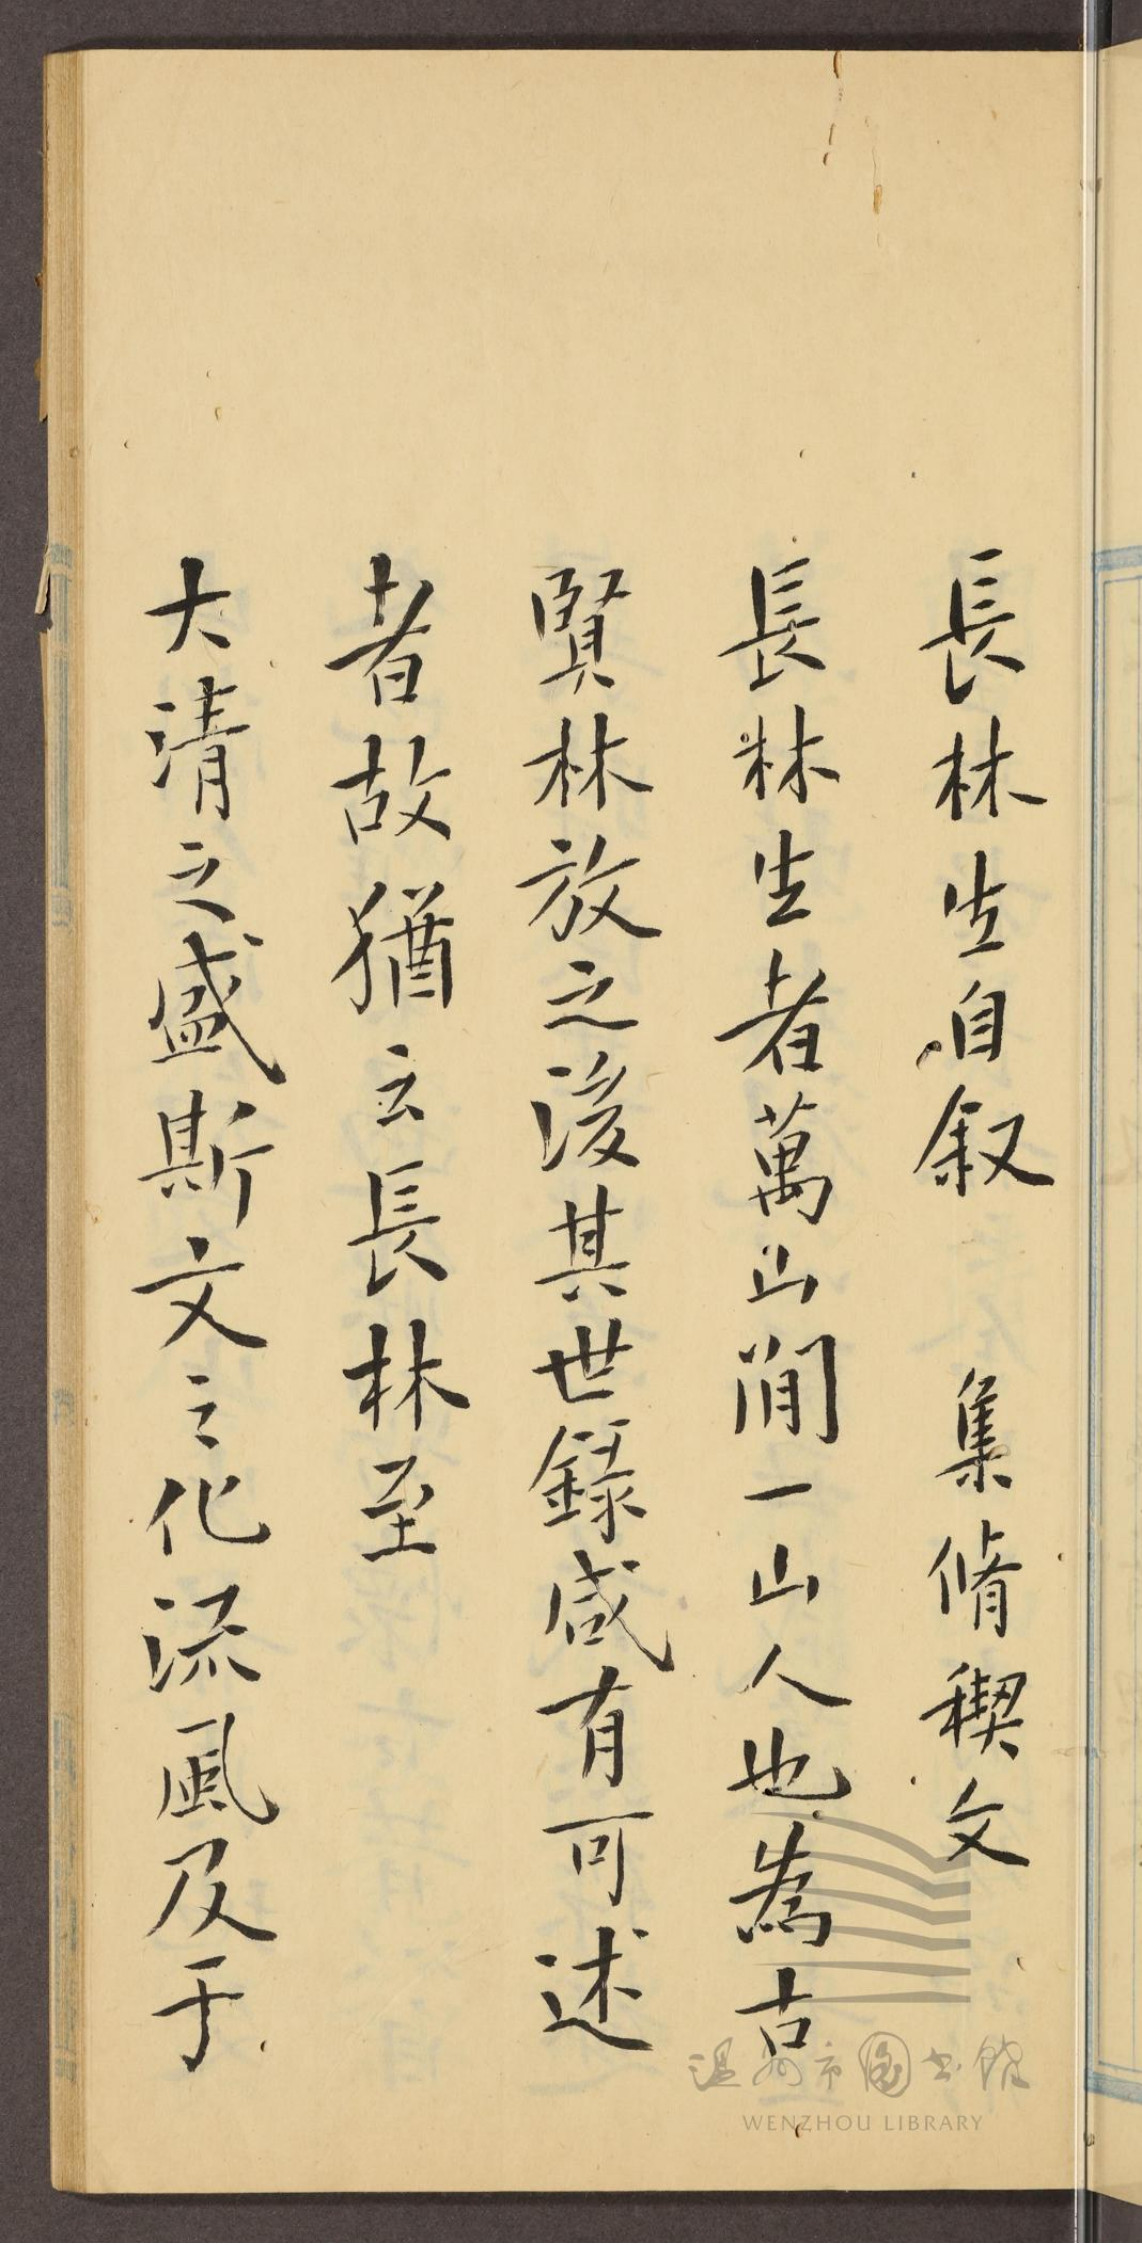 長林生自叙　集脩稧文
長林生者萬山間一山人也為古
賢林放之後其世錄咸有可述
者故猶云長林至
大清之盛斯文之化流風及于
温州市圖书館
WENZHOU LIBRARY